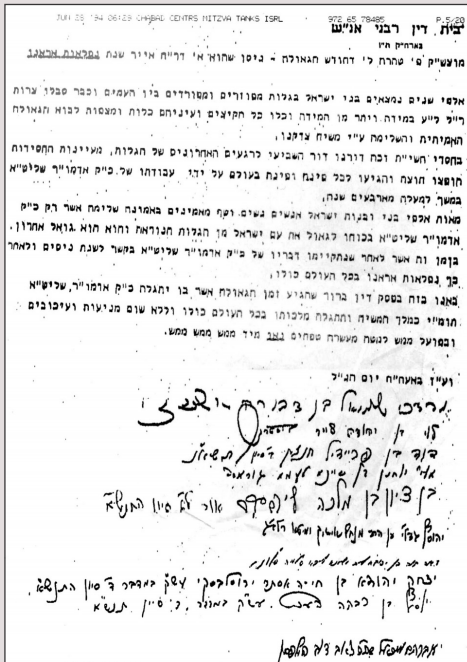 JUN 28 '94 06:29 CHABAD CENTRS MITZVA TANKS ISRL 972 65 78485 P.5/20
בית דין רבני אנ"ש
בארה"ק ת"ו
מוצש"ק פ' טהרה ל' דחודש הגאולה - ניסן שהוא א' דר"ח אייר שנת נפלאות אראנו
אלפי שנים נמצאים בני ישראל בגלות מפוזרים ומפורדים בין העמים וכבר סבלו צרות
ר"ל ל"ע במידה ויתר מן המידה וכלו כל הקיצים ועיניהם כלות ומצפות לבוא הגאולה
האמיתית והשלימה ע"י משיח צדקנו,
בחסדי השי"ת זכה דורנו דור השביעי לרגעים האחרונים של הגלות, מעיינות החסידות
הופצו חוצה והגיעו לכל פינה ופינה בעולם על ידי עבודתו של כ"ק אדמו"ר שליט"א
במשך למעלה מארבעים שנה,
מאות אלפי בני ובנות ישראל אנשים נשים וטף מאמינים באמונה שלימה אשר רק כ"ק
אדמו"ר שליט"א בכוחו לגאול את עם ישראל מן הגלות הנוראה והוא הוא גואל אחרון.
בזמן זה אשר לאחר שנתקיימו דבריו של כ"ק אדמו"ר שליט"א בקשר לשנת ניסים ולאחר
כך נפלאות אראנו בכל העולם כולו,
באנו בזה בפסק דין ברור שהגיע זמן הגאולה אשר בו יתגלה כ"ק אדמו"ר שליט"א
תומ"י כמלך המשיח ותתגלה מלכותו בכל העולם כולו וללא שום מניעות ועיכובים
ובפועל ממש למטה מעשרה טפחים נאו מיד ממש ממש ממש.
ועי"ז באעה"ח יום הנ"ל
מרדכי שמואל בן
לוי בן יהודית
דוד בן פריידל
בן ציון בן מלכה ליפסקר אור לג' סיון התנש"א
יצחק יהודא בן חייה אסתר ירוסלבסקי עש"ק במדבר ד' סיון התנש"א
בן רבקה עש"ק במדבר, ד' סיון תנש"א